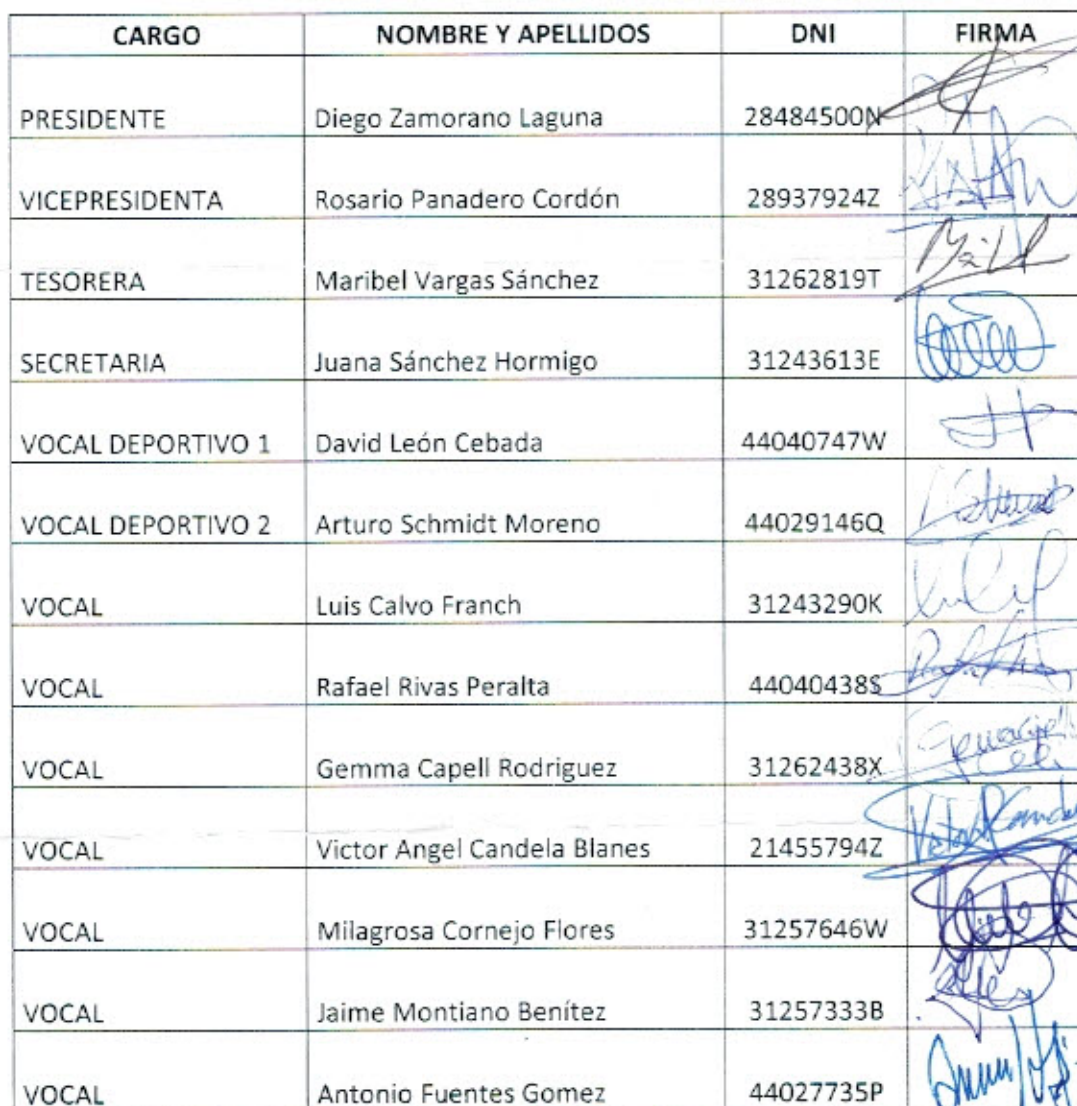 CARGO NOMBRE Y APELLIDOS DNI FIRMA
PRESIDENTE Diego Zamorano Laguna 28484500N
VICEPRESIDENTA Rosario Panadero Cordón 28937924Z
TESORERA Maribel Vargas Sánchez 31262819T
SECRETARIA Juana Sánchez Hormigo 31243613E
VOCAL DEPORTIVO 1 David León Cebada 44040747W
VOCAL DEPORTIVO 2 Arturo Schmidt Moreno 44029146Q
VOCAL Luis Calvo Franch 31243290K
VOCAL Rafael Rivas Peralta 44040438S
VOCAL Gemma Capell Rodriguez 31262438X
VOCAL Victor Angel Candela Blanes 21455794Z
VOCAL Milagrosa Cornejo Flores 31257646W
VOCAL Jaime Montiano Benítez 31257333B
VOCAL Antonio Fuentes Gomez 44027735P